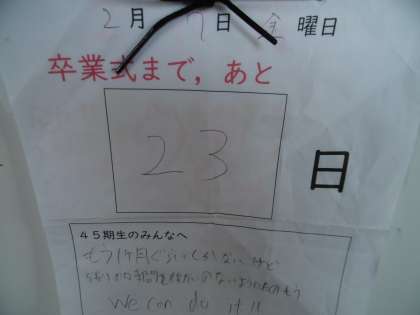 2月7日 金曜日
卒業式まで，あと
23
日
45期生のみんなへ
もう1ヶ月ぐらいしかないけど
のないようにたのもう
We can do it!!